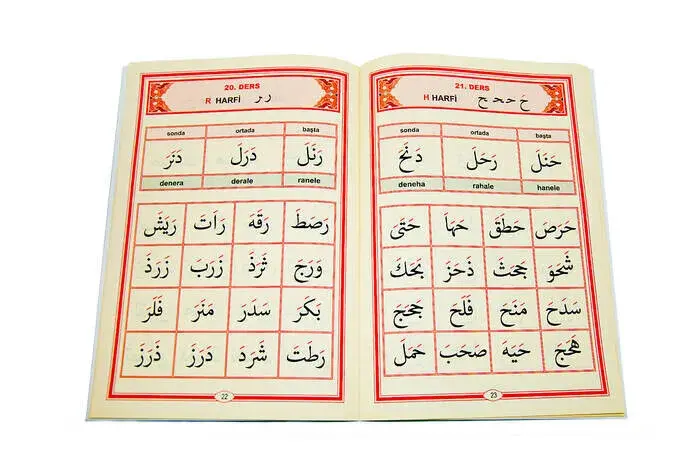 20. DERS
R HARFİ ر ر
sonda ortada başta
رَنَلَ دَرَلَ دَنَرَ
denera derale ranele
رَصَطَ رَقَهَ رَاتَ رَيَشَ
وَرَجَ ثَرَذَ زَرَبَ زَرَذَ
بَكَرَ سَدَرَ مَنَرَ فَلَرَ
رَطَتَ شَرَدَ دَرَزَ ذَرَزَ
22
21. DERS
H HARFİ ح ححح
sonda ortada başta
حَنَلَ رَحَلَ دَنَحَ
deneha rahale hanele
حَرَصَ حَطَقَ حَهَا حَتَى
شَحَوَ جَحَثَ ذَحَزَ بَحَكَ
سَدَحَ مَنَحَ فَلَحَ جَحَجَ
هَحَجَ حَيَهَ صَحَبَ حَمَلَ
23